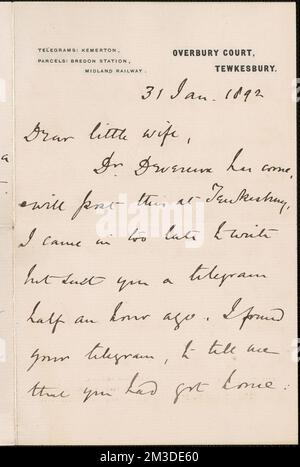 TELEGRAMS: KEMERTON,
PARCELS: BREDON STATION,
MIDLAND RAILWAY.
OVERBURY COURT,
TEWKESBURY.
31 Jan. 1892
Dear little wife,
Dr Devereux has come,
& will post this at Tewkesbury,
I came in too late to write
but sent you a telegram
half an hour ago. I found
your telegram, to tell me
that you had got home:
a
alamy
Image ID: 2M3DE60
www.alamy.com